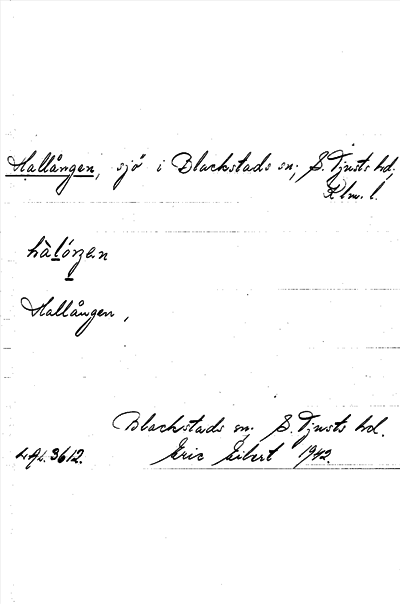 Hallången, sjö i Blackstads sn; S. Tjusts hd.
Klm. l.
Hallången,
Blackstads sn, S. Tjusts hd.
L.A.L. 3612. Eric Eibert 1942.